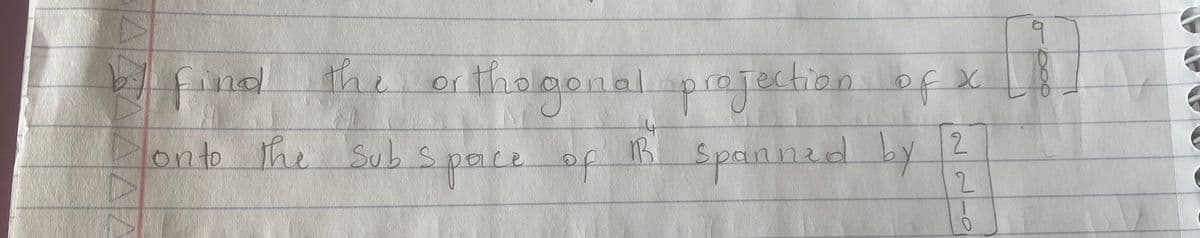 b) find the orthogonal projection of x [9 0 0 0]
onto the subspace of ℝ⁴ spanned by [2 2 1 0]